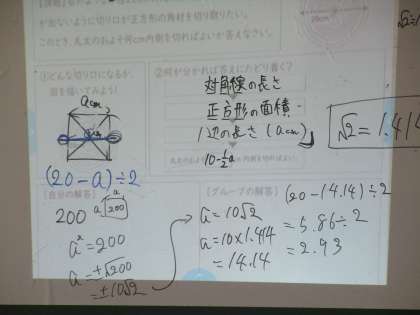 が出ないように切り口が正方形の角材を切り取りたい。
このとき、丸太のおよそ何cm内側を切ればよいか答えなさい。
20cm
①どんな切り口になるか、
図を描いてみよう!
acm
(20-a)÷2
②何が分かれば答えにたどり着く?
対角線の長さ
正方形の面積
1辺の長さ(acm)
10-½a
√2=1.414
【自分の解答】
200 a 200
a
a²=200
a=±√200
=±10√2
【グループの解答】
a=10√2
a=10×1.414
=14.14
(20-14.14)÷2
=5.86÷2
=2.93